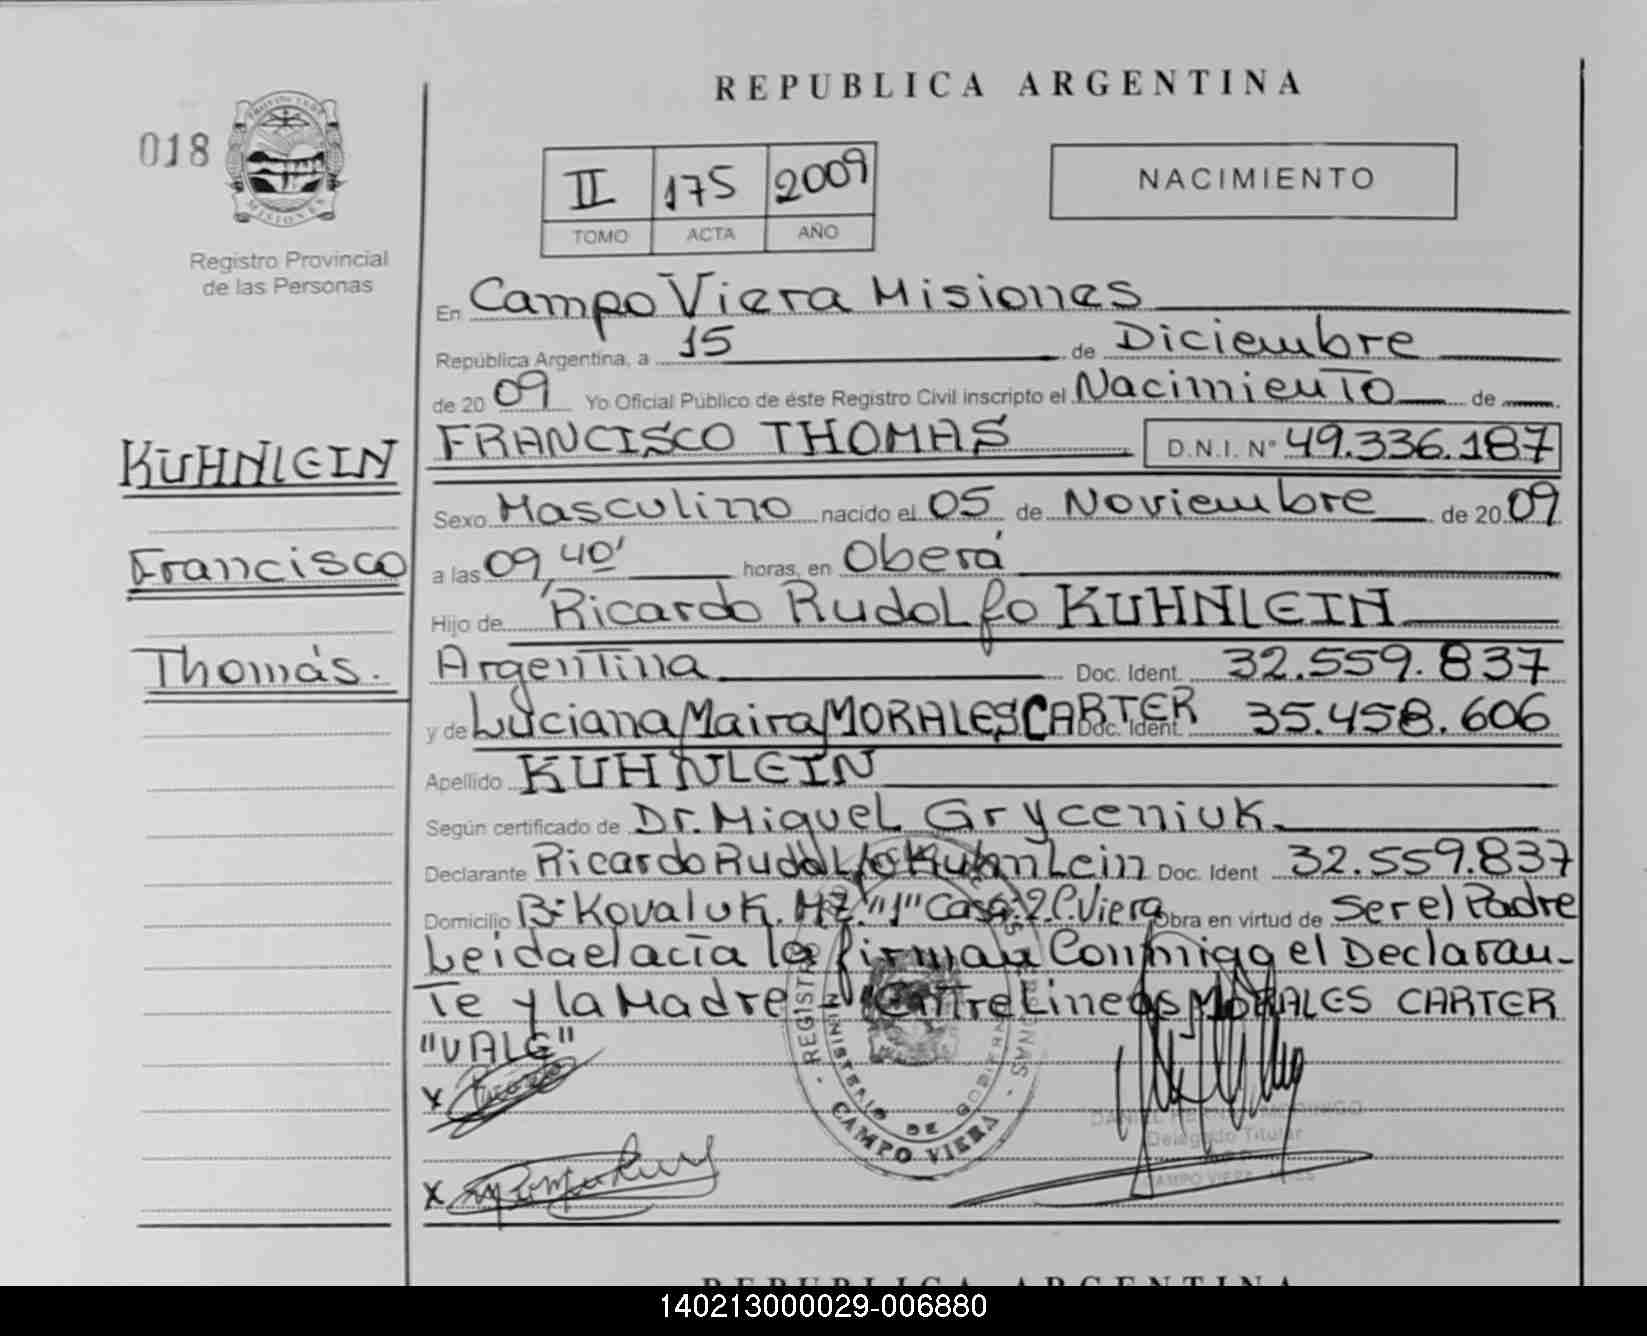 REPUBLICA ARGENTINA
018
PROVINCIA DE
MISIONES
Registro Provincial
de las Personas
II 175 2009
TOMO ACTA AÑO
NACIMIENTO
KUHNLEIN
Francisco
Thomás.
En Campo Viera Misiones
República Argentina, a 15 de Diciembre
de 20 09 Yo Oficial Público de éste Registro Civil inscripto el Nacimiento de
FRANCISCO THOMAS D.N.I. Nº 49.336.187
Sexo Masculino nacido el 05 de Noviembre de 20 09
a las 09,40' horas, en Oberá
Hijo de Ricardo Rudolfo KUHNLEIN
Argentina Doc. Ident. 32.559.837
y de Luciana Maira MORALES CARTER Doc. Ident. 35.458.606
Apellido KUHNLEIN
Según certificado de Dr. Miguel Gryceniuk
Declarante Ricardo Rudolfo Kuhnlein Doc. Ident 32.559.837
Domicilio Bº Kovaluk. MZ "1" Casa: 2 C. Viera Obra en virtud de ser el Padre
Leida el acta la firman Conmigo el Declaran-
te y la Madre - Entre Lineas MORALES CARTER
"VALE"
X
X
REGISTR PERSONAS
MINISTERIO DE GOBIERN
CAMPO VIERA
Delegado Titular
CAMPO VIERA
REPUBLICA ARGENTINA
140213000029-006880